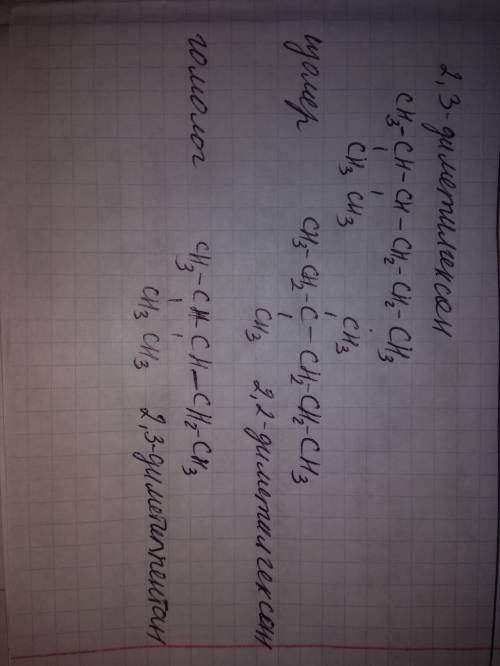 2,3-диметилгексан
CH3-CH-CH-CH2-CH2-CH3
CH3 CH3
изомер
CH3
CH3-CH2-C-CH2-CH2-CH3
CH3
2,2-диметилгексан
гомолог
CH3-CH-CH-CH2-CH3
CH3 CH3
2,3-диметилпентан